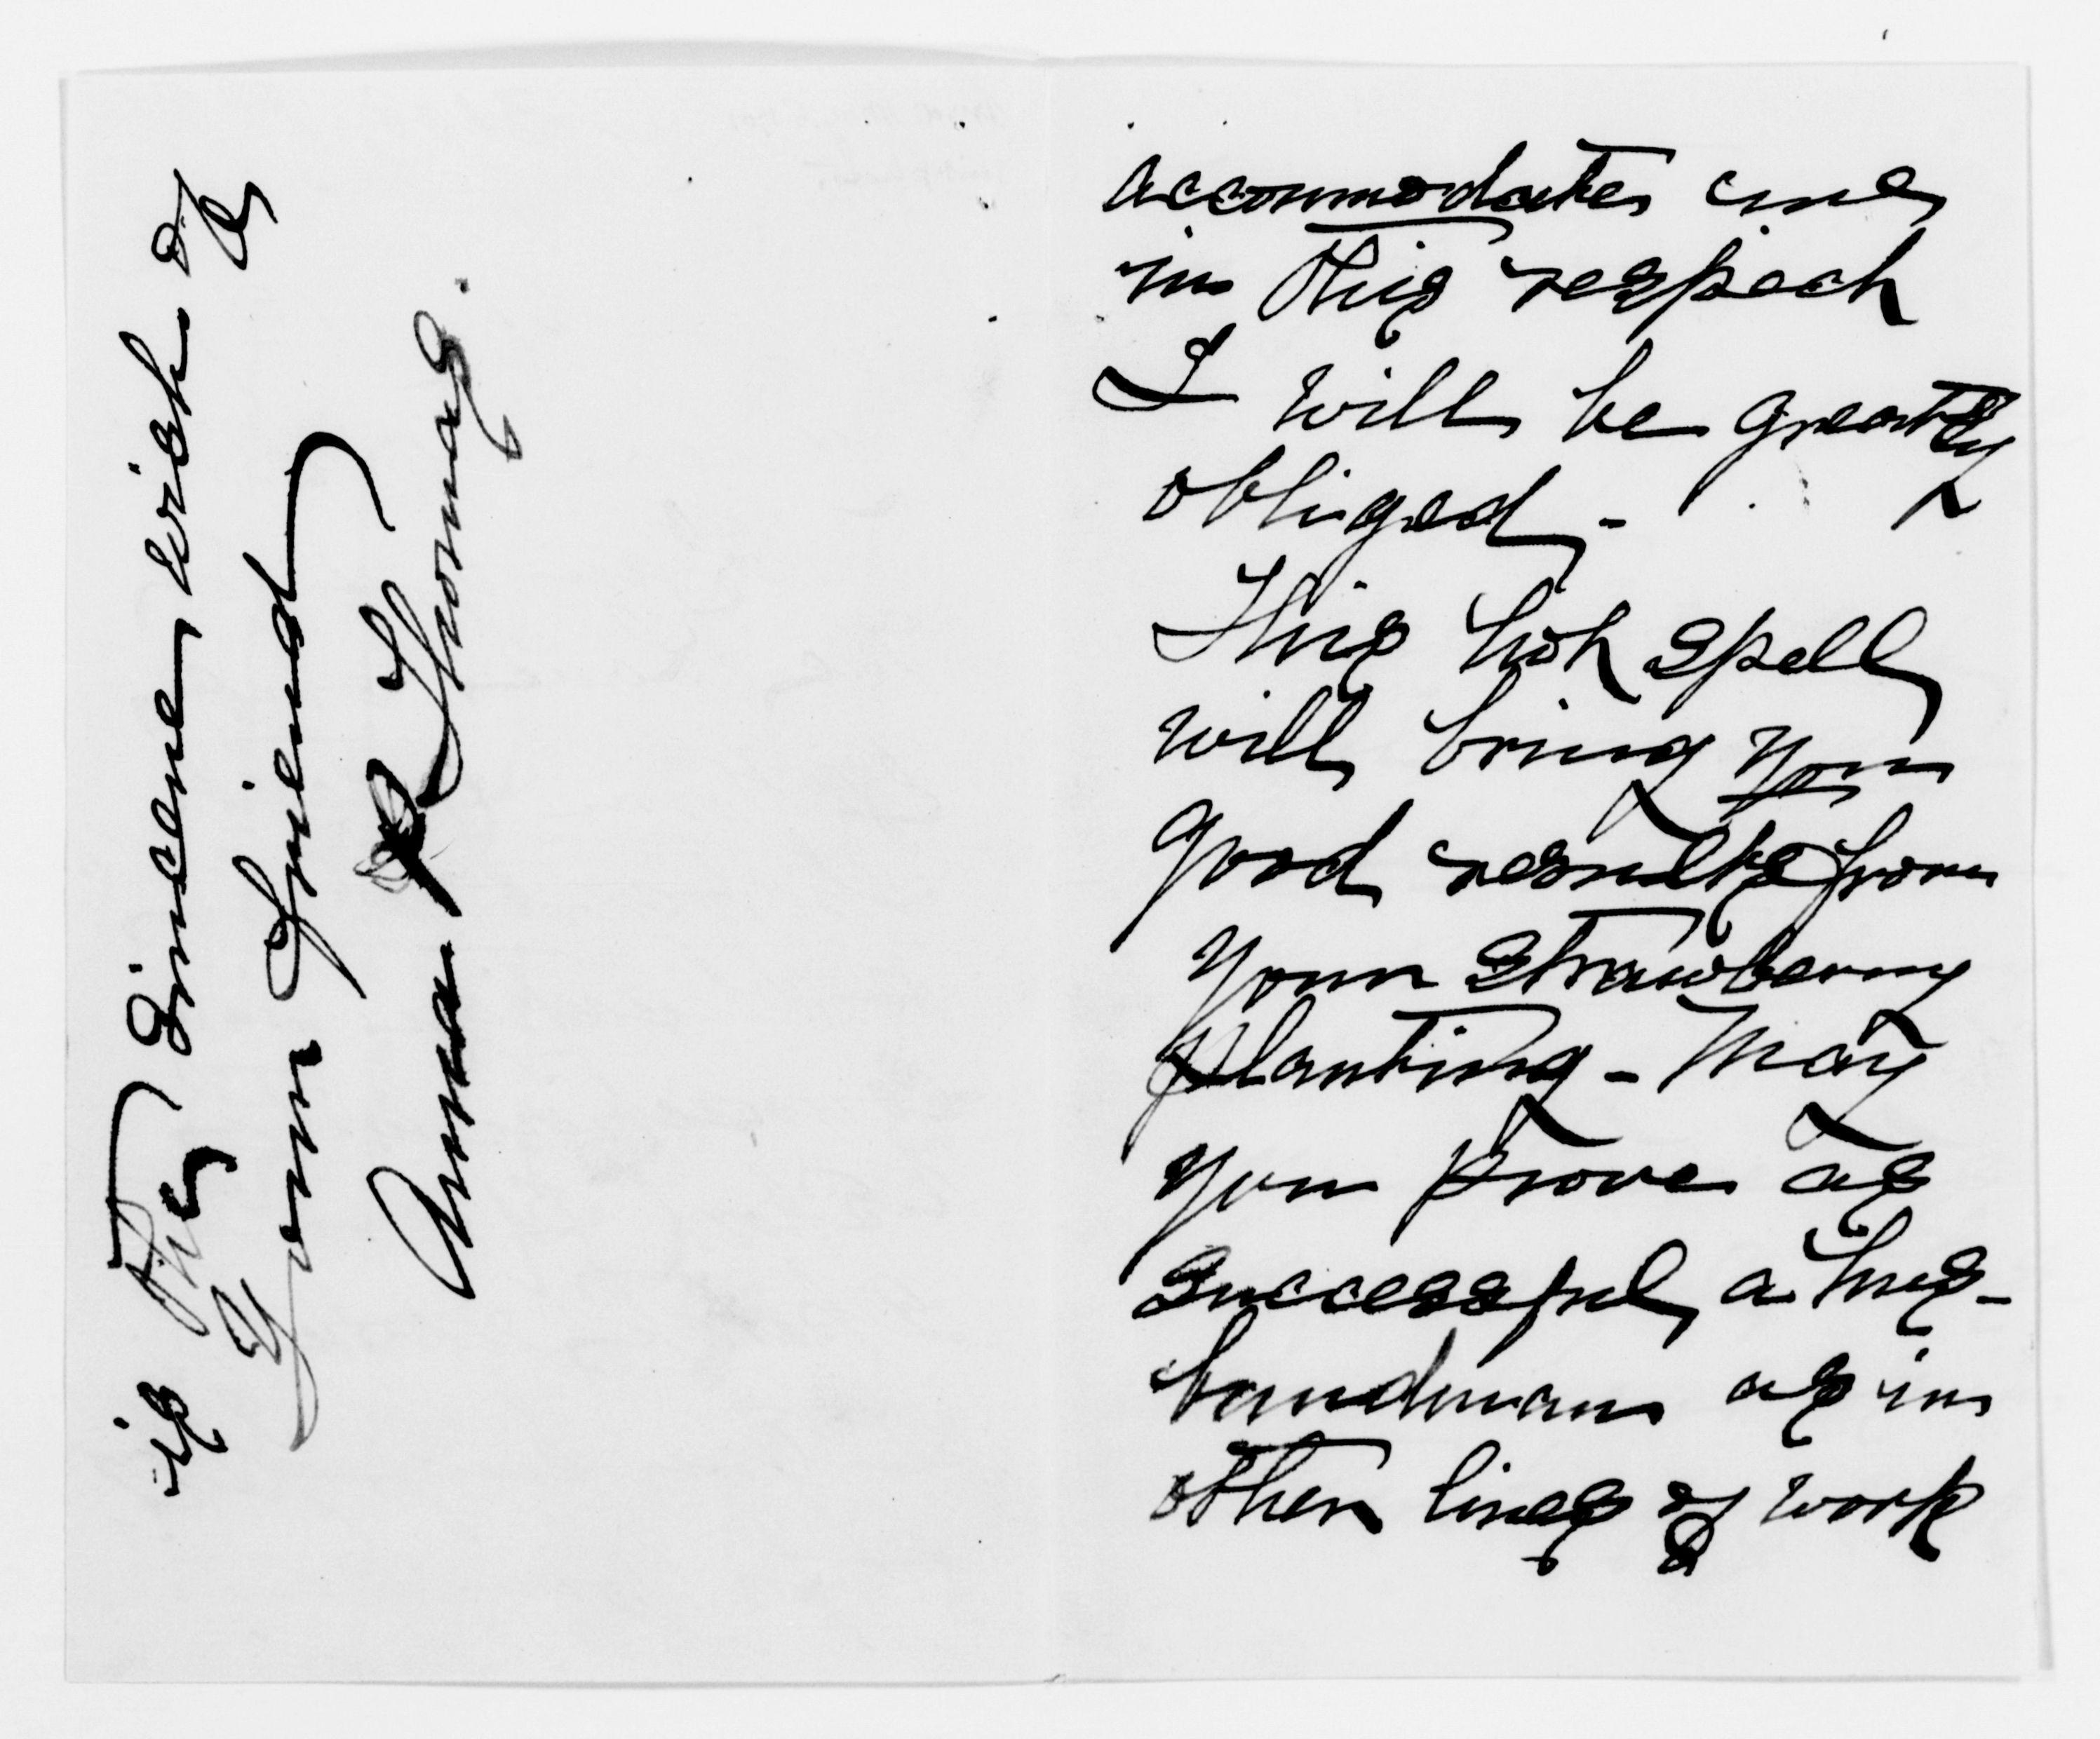 accommodate me
in this respect
I will be greatly
obliged -
This hot spell
will bring you
good results from
your strawberry
planting - May
you prove as
successful a hus-
bandman as in
other lines of work
is the sincere wish of
Your friend
Anna R Thomas.